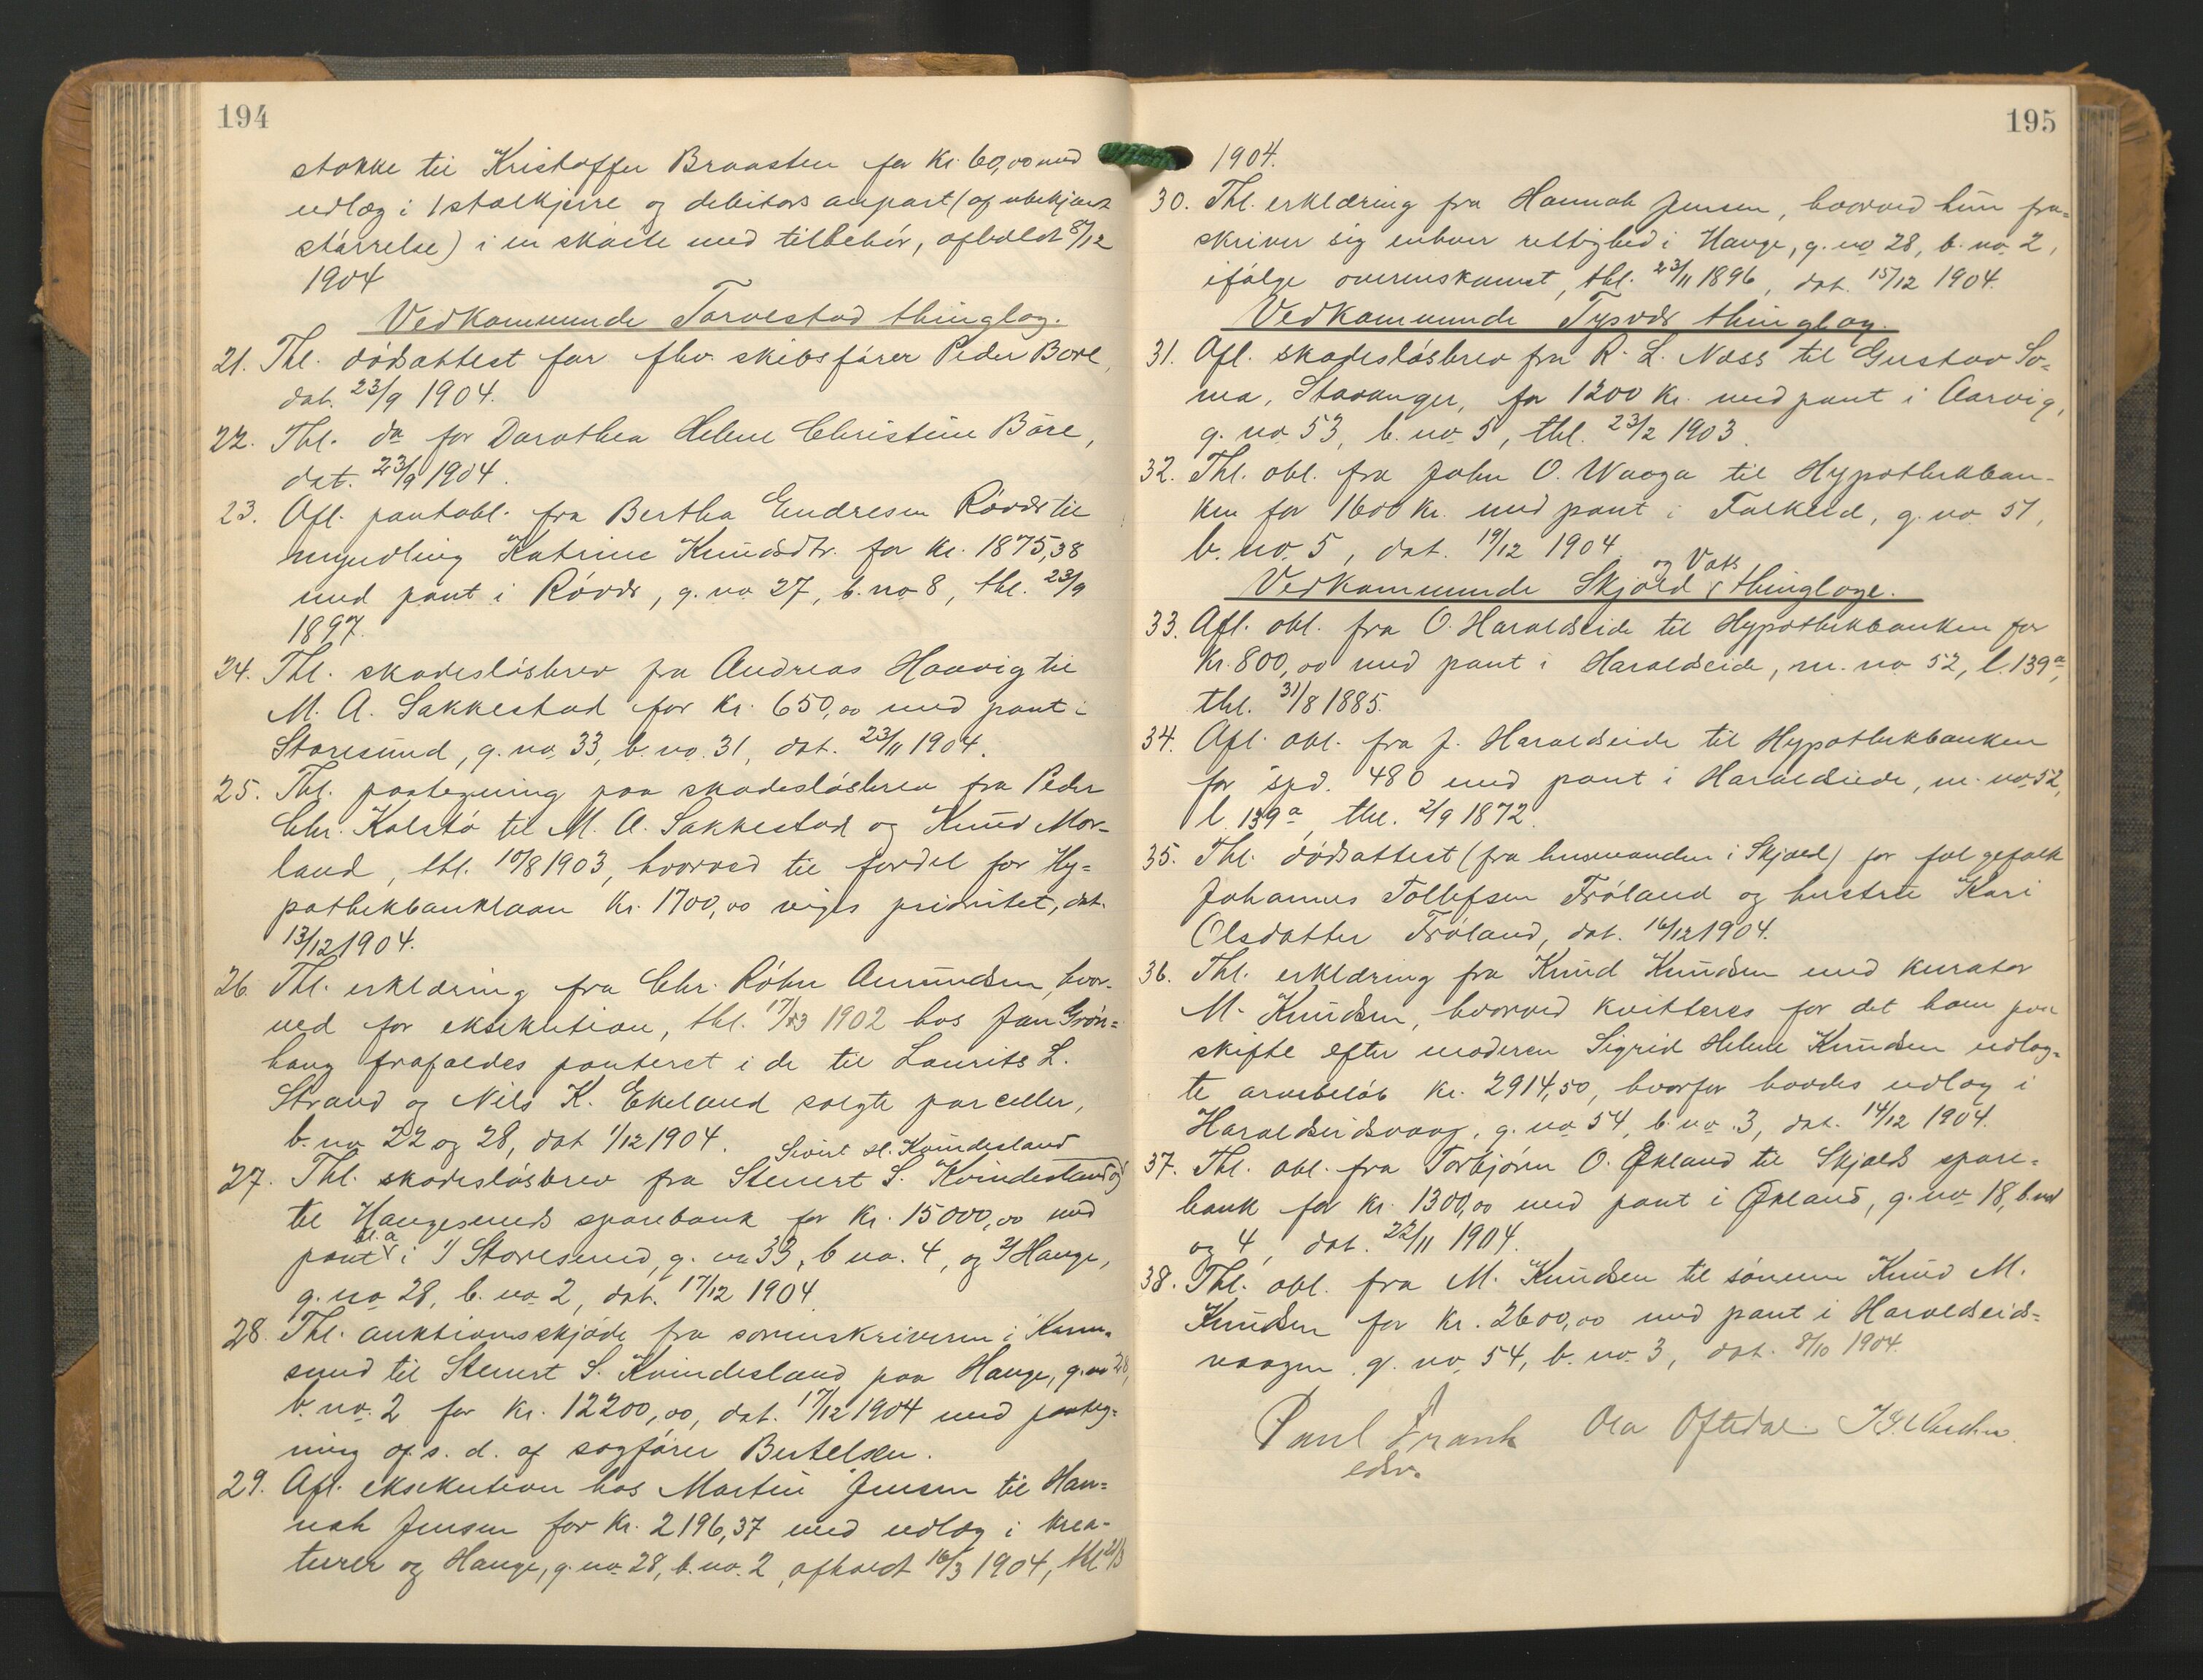 194
stokke til Kristoffer Braasten for kr. 60,00 med
udlæg i 1 stolkjerre og debitors anpart (af ubekjent
størrelse) i en skøite med tilbehør, afholdt 8/12
1904
Vedkommende Torvestad thinglag.
21. Thl. dødsattest for fhv. skibsfører Peder Bore,
dat. 23/9 1904.
22. Thl. do for Dorothea Helene Christine Böre,
dat. 23/9 1904.
23. Afl. pantobl. fra Bertha Endresen Rövær til
myndling Katrine Knudsdtr. for kr. 1875,38
med pant i Rövær, g. no 27, b. no 8, thl. 23/9
1897.
24. Thl. skadesløsbrev fra Andreas Haavig til
M. A. Sakkestad for kr. 650,00 med pant i
Storesund, g. no. 33, b. no. 31, dat. 23/11 1904.
25. Thl. paategning paa skadesløsbrev fra Peder
Chr. Kolstø til M. A. Sakkestad og Knud Mor-
land, thl. 10/8 1903, hvorved til fordel for Hy=
pothekbanklaan kr. 1700,00 viges prioritet, dat.
13/12 1904.
26. Thl. erklæring fra Chr. Røhr Amundsen, hvor-
ved for eksekution, thl. 17/3 1902 hos Jan Grøn=
haug frafaldes panteret i de til Laurits L.
Strand og Nils K. Ekeland solgte parceller,
b. no 22 og 28, dat 1/12 1904.
Sivert H. Kvindesland
27. Thl. skadesløsbrev fra Stenert S. Kvindesland og
til Haugesunds sparebank for kr. 15000,00 med
bl. a.
pant i 1/ Storesund, g. no 33, b no. 4, og 2/ Hauge,
g. no 28, b. no 2, dat. 17/12 1904.
28. Thl. auktionsskjøde fra sorenskriveren i Karm-
sund til Stenert S. Kvindesland paa Hauge, g. no 28,
b. no. 2 for kr. 12200,00, dat. 17/12 1904 med paateg=
ning af s. d. af sagfører Bertelsen.
29. Afl. eksekution hos Martin Jensen til Han=
nah Jensen for kr. 2196,37 med udlæg i krea-
turer og Hauge, g. no 28, b. no. 2, afholdt 16/3 1904, thl 21/3
195
1904.
30. Thl. erklæring fra Hannah Jensen, hvorved hun fra=
skriver sig enhver rettighed i Hauge, g. no 28, b. no. 2,
ifølge overenskomst, thl. 23/11 1896, dat. 15/12 1904.
Vedkommende Tysvær thinglag.
31. Afl. skadesløsbrev fra R. L. Næss til Gustav So-
ma, Stavanger, for 1200 kr. med pant i Aarvig,
g. no 53, b. no 5, thl. 23/2 1903.
32. Thl. obl. fra John O. Waaga til Hypothekban-
ken for 1600 kr. med pant i Falkeid, g. no 51,
b. no. 5, dat. 19/12 1904.
og Vats
Vedkommende Skjold thinglage.
33. Afl. obl. fra O. Haraldseide til Hypothekbanken for
kr. 800,00 med pant i Haraldseide, m. no 52, l. 139a,
thl. 31/8 1885.
34. Afl. obl. fra J. Haraldseide til Hypothekbanken
for spd. 480 med pant i Haraldseide, m. no 52,
l. 139a, thl. 2/9 1872.
35. Thl. dødsattest (fra lensmanden i Skjold) for folgefolk
Johannes Tollefsen Frøland og hustru Kari
Olsdatter Frøland, dat. 16/12 1904.
36. Thl. erklæring fra Knud Knudsen med kurator
M. Knudsen, hvorved kvitteres for det ham paa
skifte efter moderen Sigrid Helene Knudsen udlag=
te arvebeløb kr. 2914,50, hvorfor havdes udlæg i
Haraldseidsvaag, g. no 54, b. no. 3, dat. 14/12 1904.
37. Thl. obl. fra Torbjørn O. Økland til Skjolds spare=
bank for kr. 1300,00 med pant i Økland, g. no 18, b. no
og 4, dat. 22/11 1904.
38. Thl. obl. fra M. Knudsen til sønnen Knud M.
Knudsen for kr. 2600,00 med pant i Haraldseids=
vaagen g. no. 54, b. no. 3, dat. 8/10 1904.
Paul Frank Ola Oftedal
edsv.